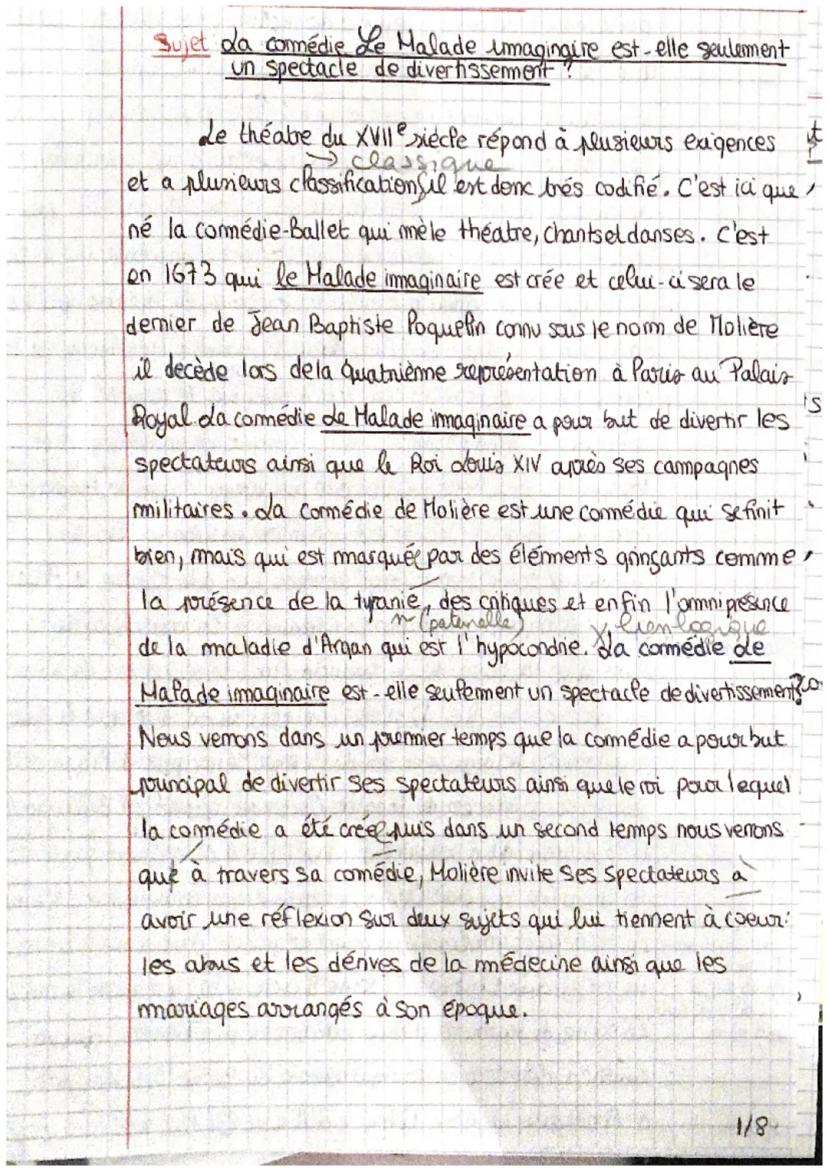 Sujet La comédie Le Malade imaginaire est-elle seulement
un spectacle de divertissement ?
Le théatre du XVIIe siècle répond à plusieurs exigences
→ classique
et a plusieurs classifications, il est donc très codifié. C'est ici que
né la comédie-Ballet qui mèle théatre, chants et danses. C'est
en 1673 qui le Malade imaginaire est crée et celui-ci sera le
dernier de Jean Baptiste Poquelin connu sous le nom de Molière
il decède lors de la quatrième représentation à Paris au Palais
Royal. La comédie Le Malade imaginaire a pour but de divertir les
spectateurs ainsi que le Roi Louis XIV après ses campagnes
militaires. La comédie de Molière est une comédie qui se finit
bien, mais qui est marquée par des éléments grinçants comme
la présence de la tyranie, des critiques et enfin l'omniprésence
n (paternelle) lien logique
de la maladie d'Argan qui est l'hypocondrie. La comédie Le
Malade imaginaire est-elle seulement un spectacle de divertissement ?
Nous verrons dans un premier temps que la comédie a pour but
principal de divertir ses spectateurs ainsi que le roi pour lequel
la comédie a été créée puis dans un second temps nous verrons
que à travers sa comédie, Molière invite ses spectateurs a
avoir une réflexion sur deux sujets qui lui tiennent à coeur:
les abus et les dérives de la médecine ainsi que les
mariages arrangés à son époque.
1/8